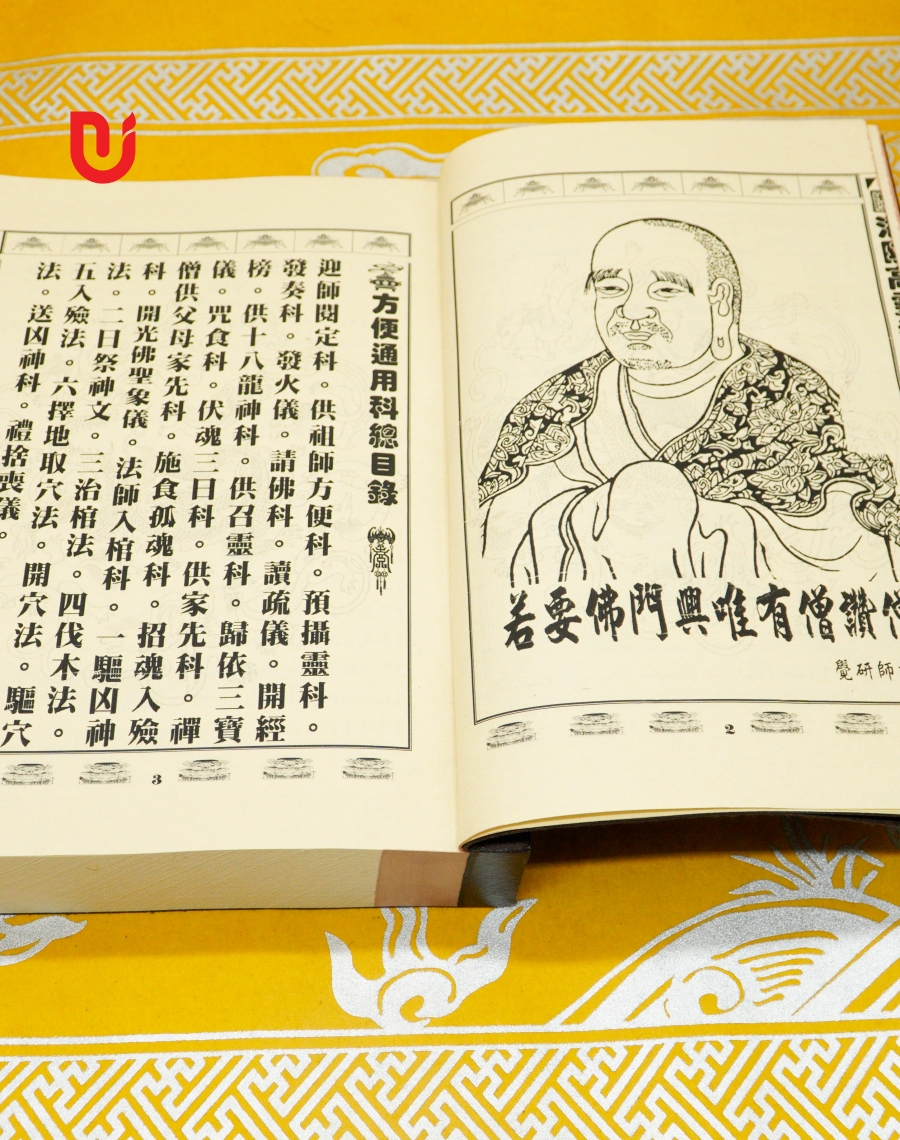 若要佛門興唯有僧讚
覺研師
2
方便通用科總目錄
迎師閱定科。供祖師方便科。預攝靈科。
發奏科。發火儀。請佛科。讀疏儀。開經
榜。供十八龍神科。供召靈科。歸依三寶
儀。咒食科。伏魂三日科。供家先科。禪
僧供父母家先科。施食孤魂科。招魂入殮
科。開光佛聖象儀。法師入棺科。一驅凶神
法。二日祭神文。三治棺法。四伐木法。
五入殮法。六擇地取穴法。開穴法。驅穴
法。送凶神科。禮捨喪儀。
3